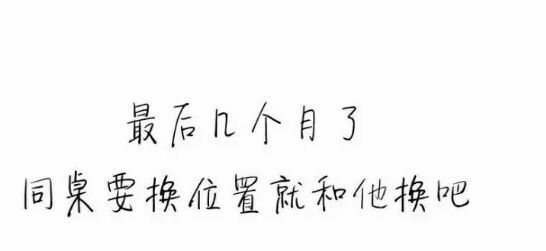 最后几个月了
同桌要换位置就和他换吧